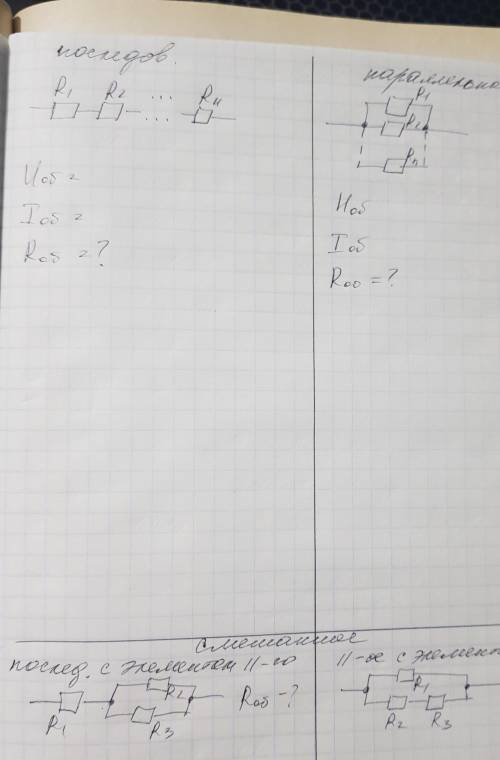 последов.
R₁ R₂ ... Rн
...
Uоб =
Iоб =
Rоб = ?
параллельно
R₁
R₂
Rn
Uоб
Iоб
Rоб = ?
смешанное
послед. с элементом ||-го
R₁ R₂ R₃ Rоб - ?
||-ое с элемент
R₁
R₂ R₃